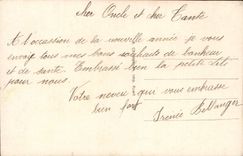 Cher Oncle et cher Tante
A l'occasion de la nouvelle année je vous
envoy tous mes bons souhaits de bonheur
et de santé. Embrassé bien la petite
pour nous.
Votre neveu qui vous embrasse
bien fort
Irénée